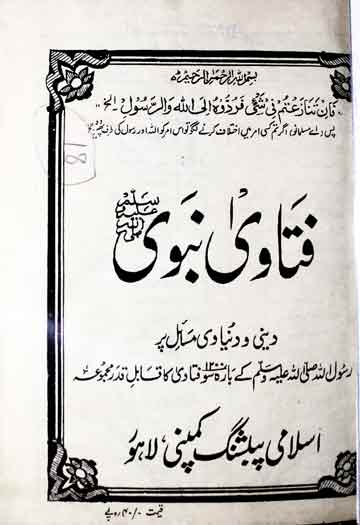 بسم اللہ الرحمن الرحیم
فَاِنْ تَنَازَعْتُمْ فِیْ شَیْءٍ فَرُدُّوْہُ اِلَی اللّٰہِ وَالرَّسُوْلِ۔ الخ
پس اے مسلمانو! اگر تم کسی امر میں اختلاف کرنے لگو تو اس امر کو اللہ اور رسول کی
18
فتاویٰ نبوی صلی اللہ علیہ وسلم
دینی و دنیاوی مسائل پر
رسول اللہ صلی اللہ علیہ وسلم کے بارہ سو ۱۲۰۰ فتاویٰ کا قابلِ قدر مجموعہ
اسلامی پبلشنگ کمپنی، لاہور
قیمت ۴۰/۰ روپے